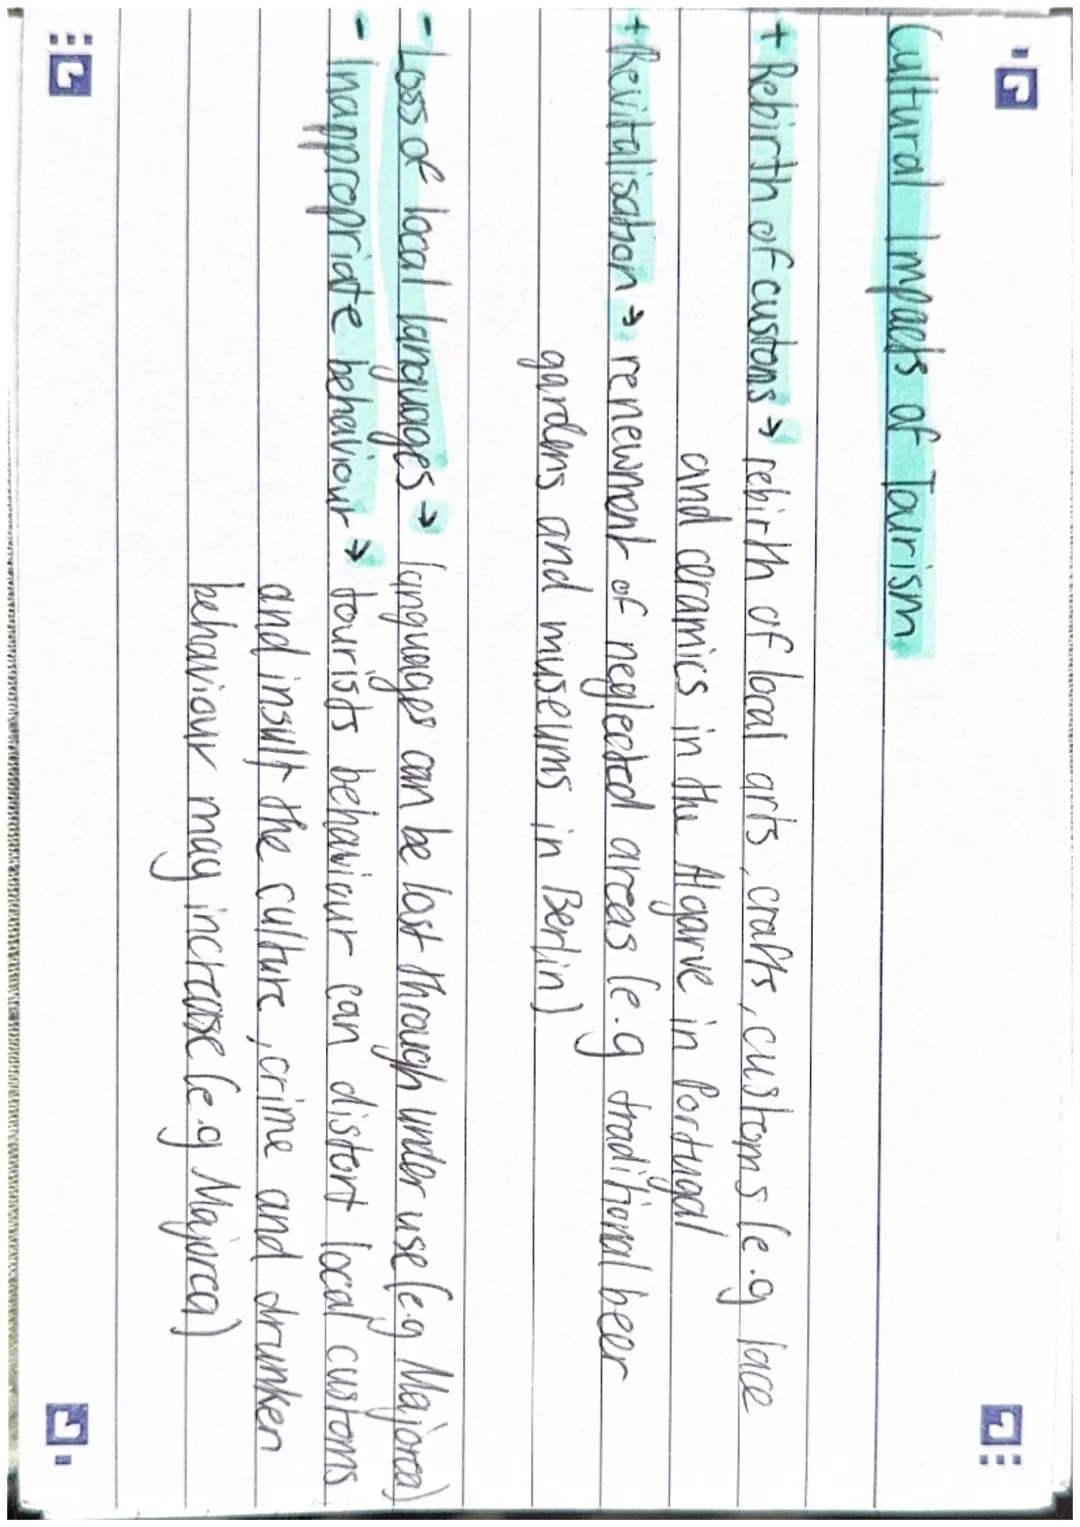 Cultural Impacts of Tourism
+ Rebirth of customs → rebirth of local arts, crafts, customs (e.g lace
and ceramics in the Algarve in Portugal
+ Revitalisation → renewment of neglected areas (e.g traditional beer
gardens and museums in Berlin)
- Loss of local languages → languages can be lost through under use (e.g Majorca)
- Inappropriate behaviour → tourists behaviour can distort local customs
and insult the culture, crime and drunken
behaviour may increase (e.g Majorca)